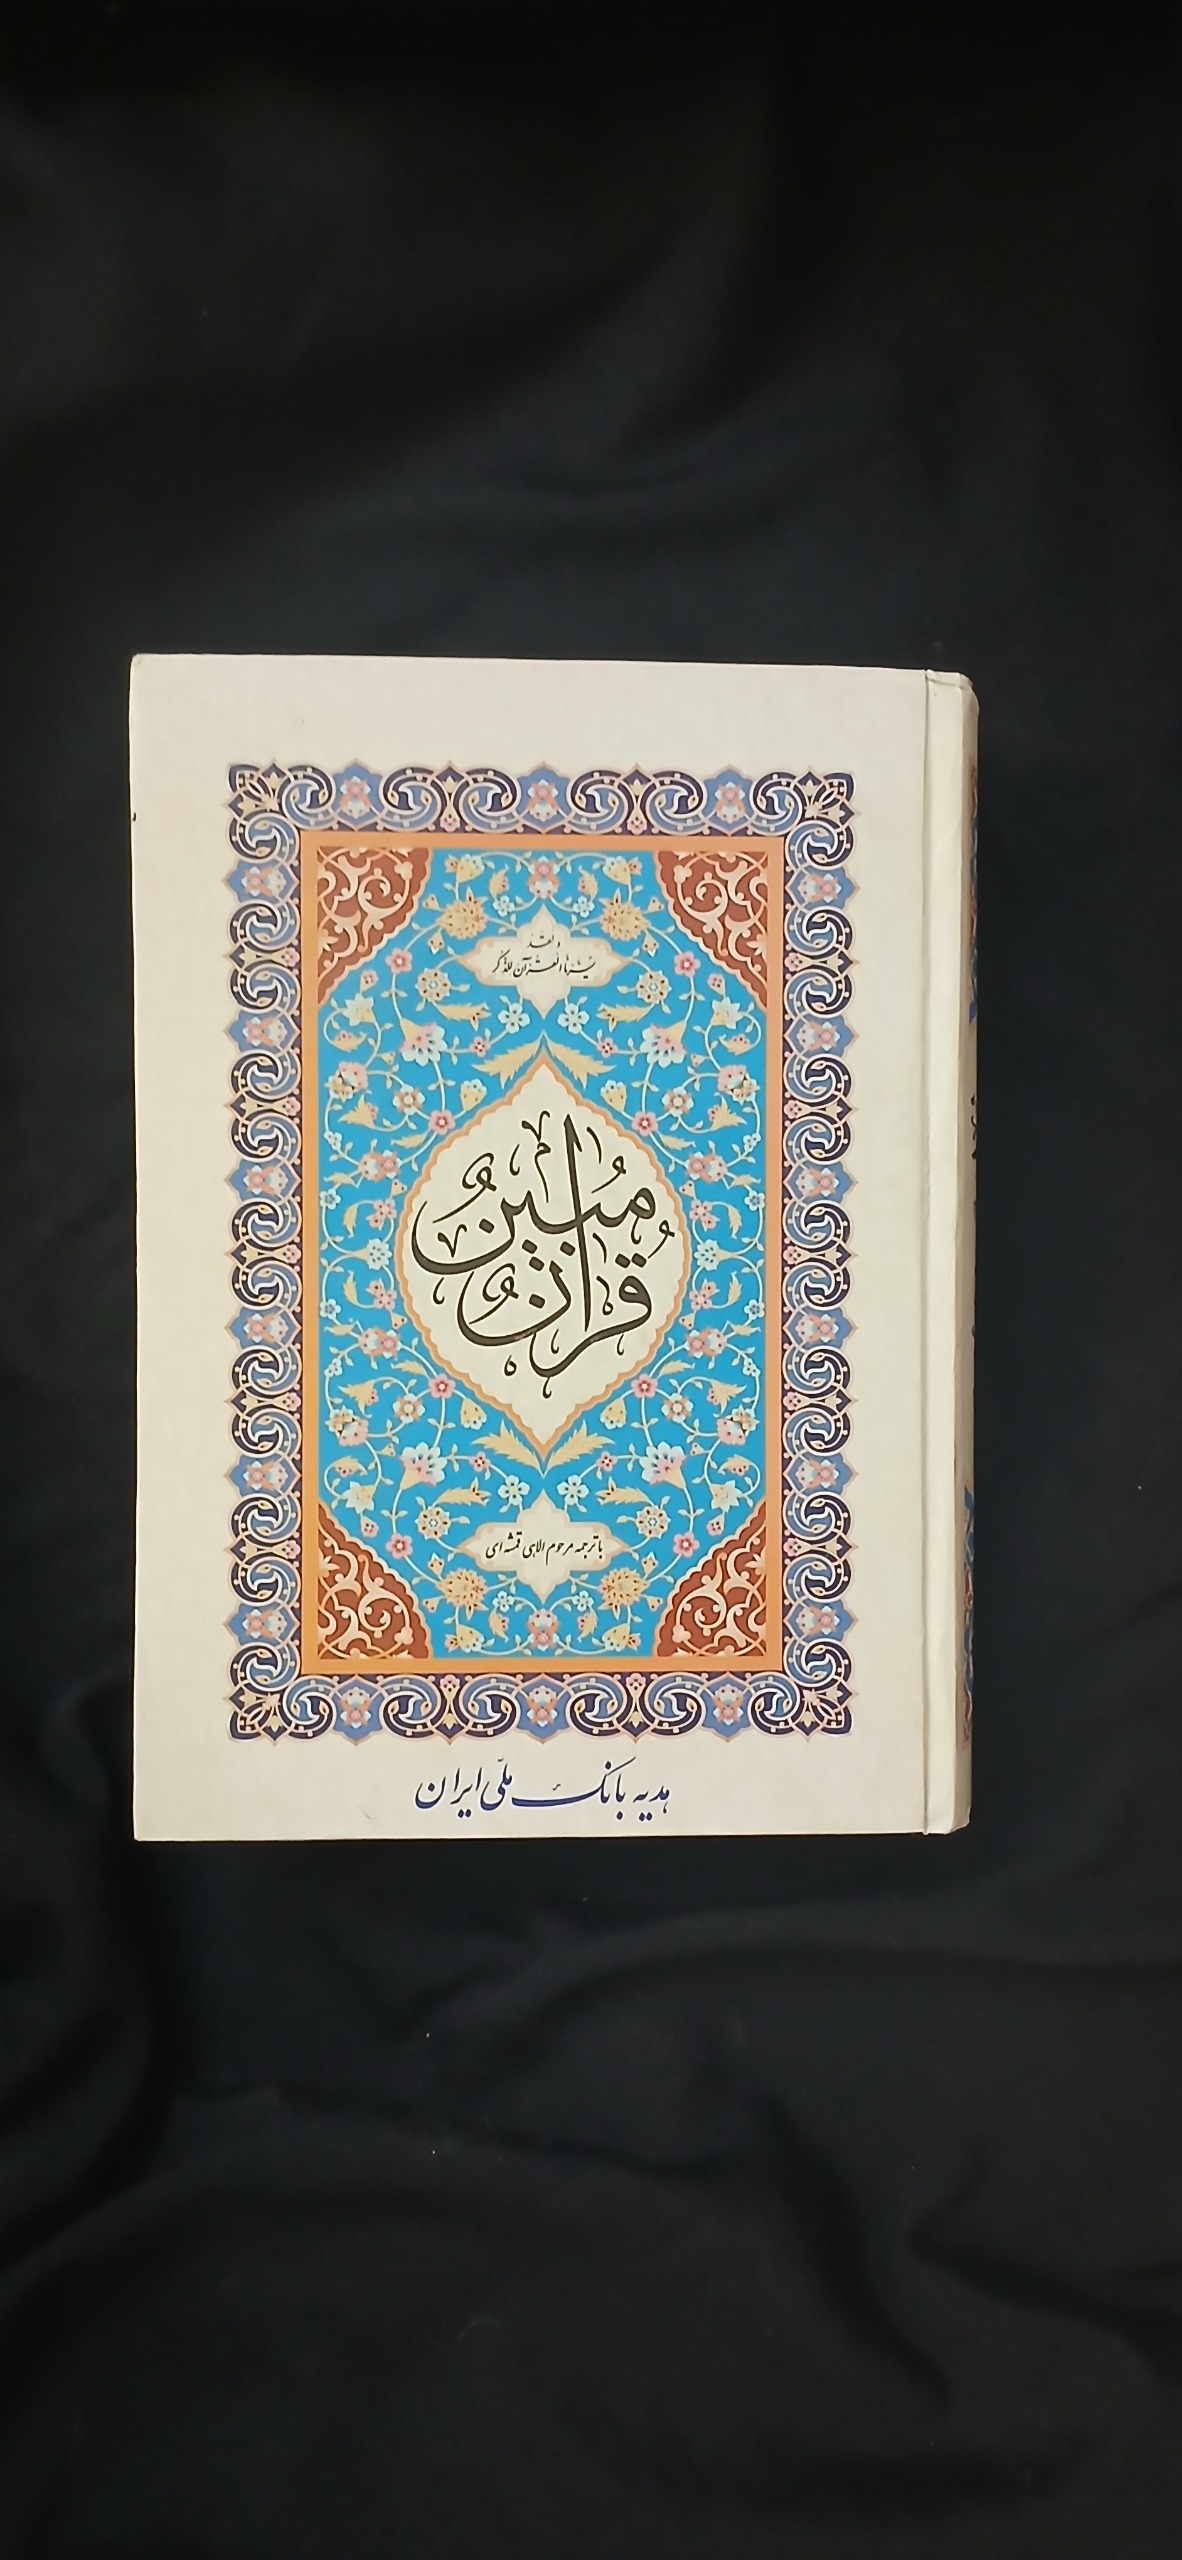 ولقد
یسرنا القرآن للذکر
قُرآنٌ مُبینٌ
با ترجمه مرحوم الاهی قمشه ای
هدیه بانک ملّی ایران